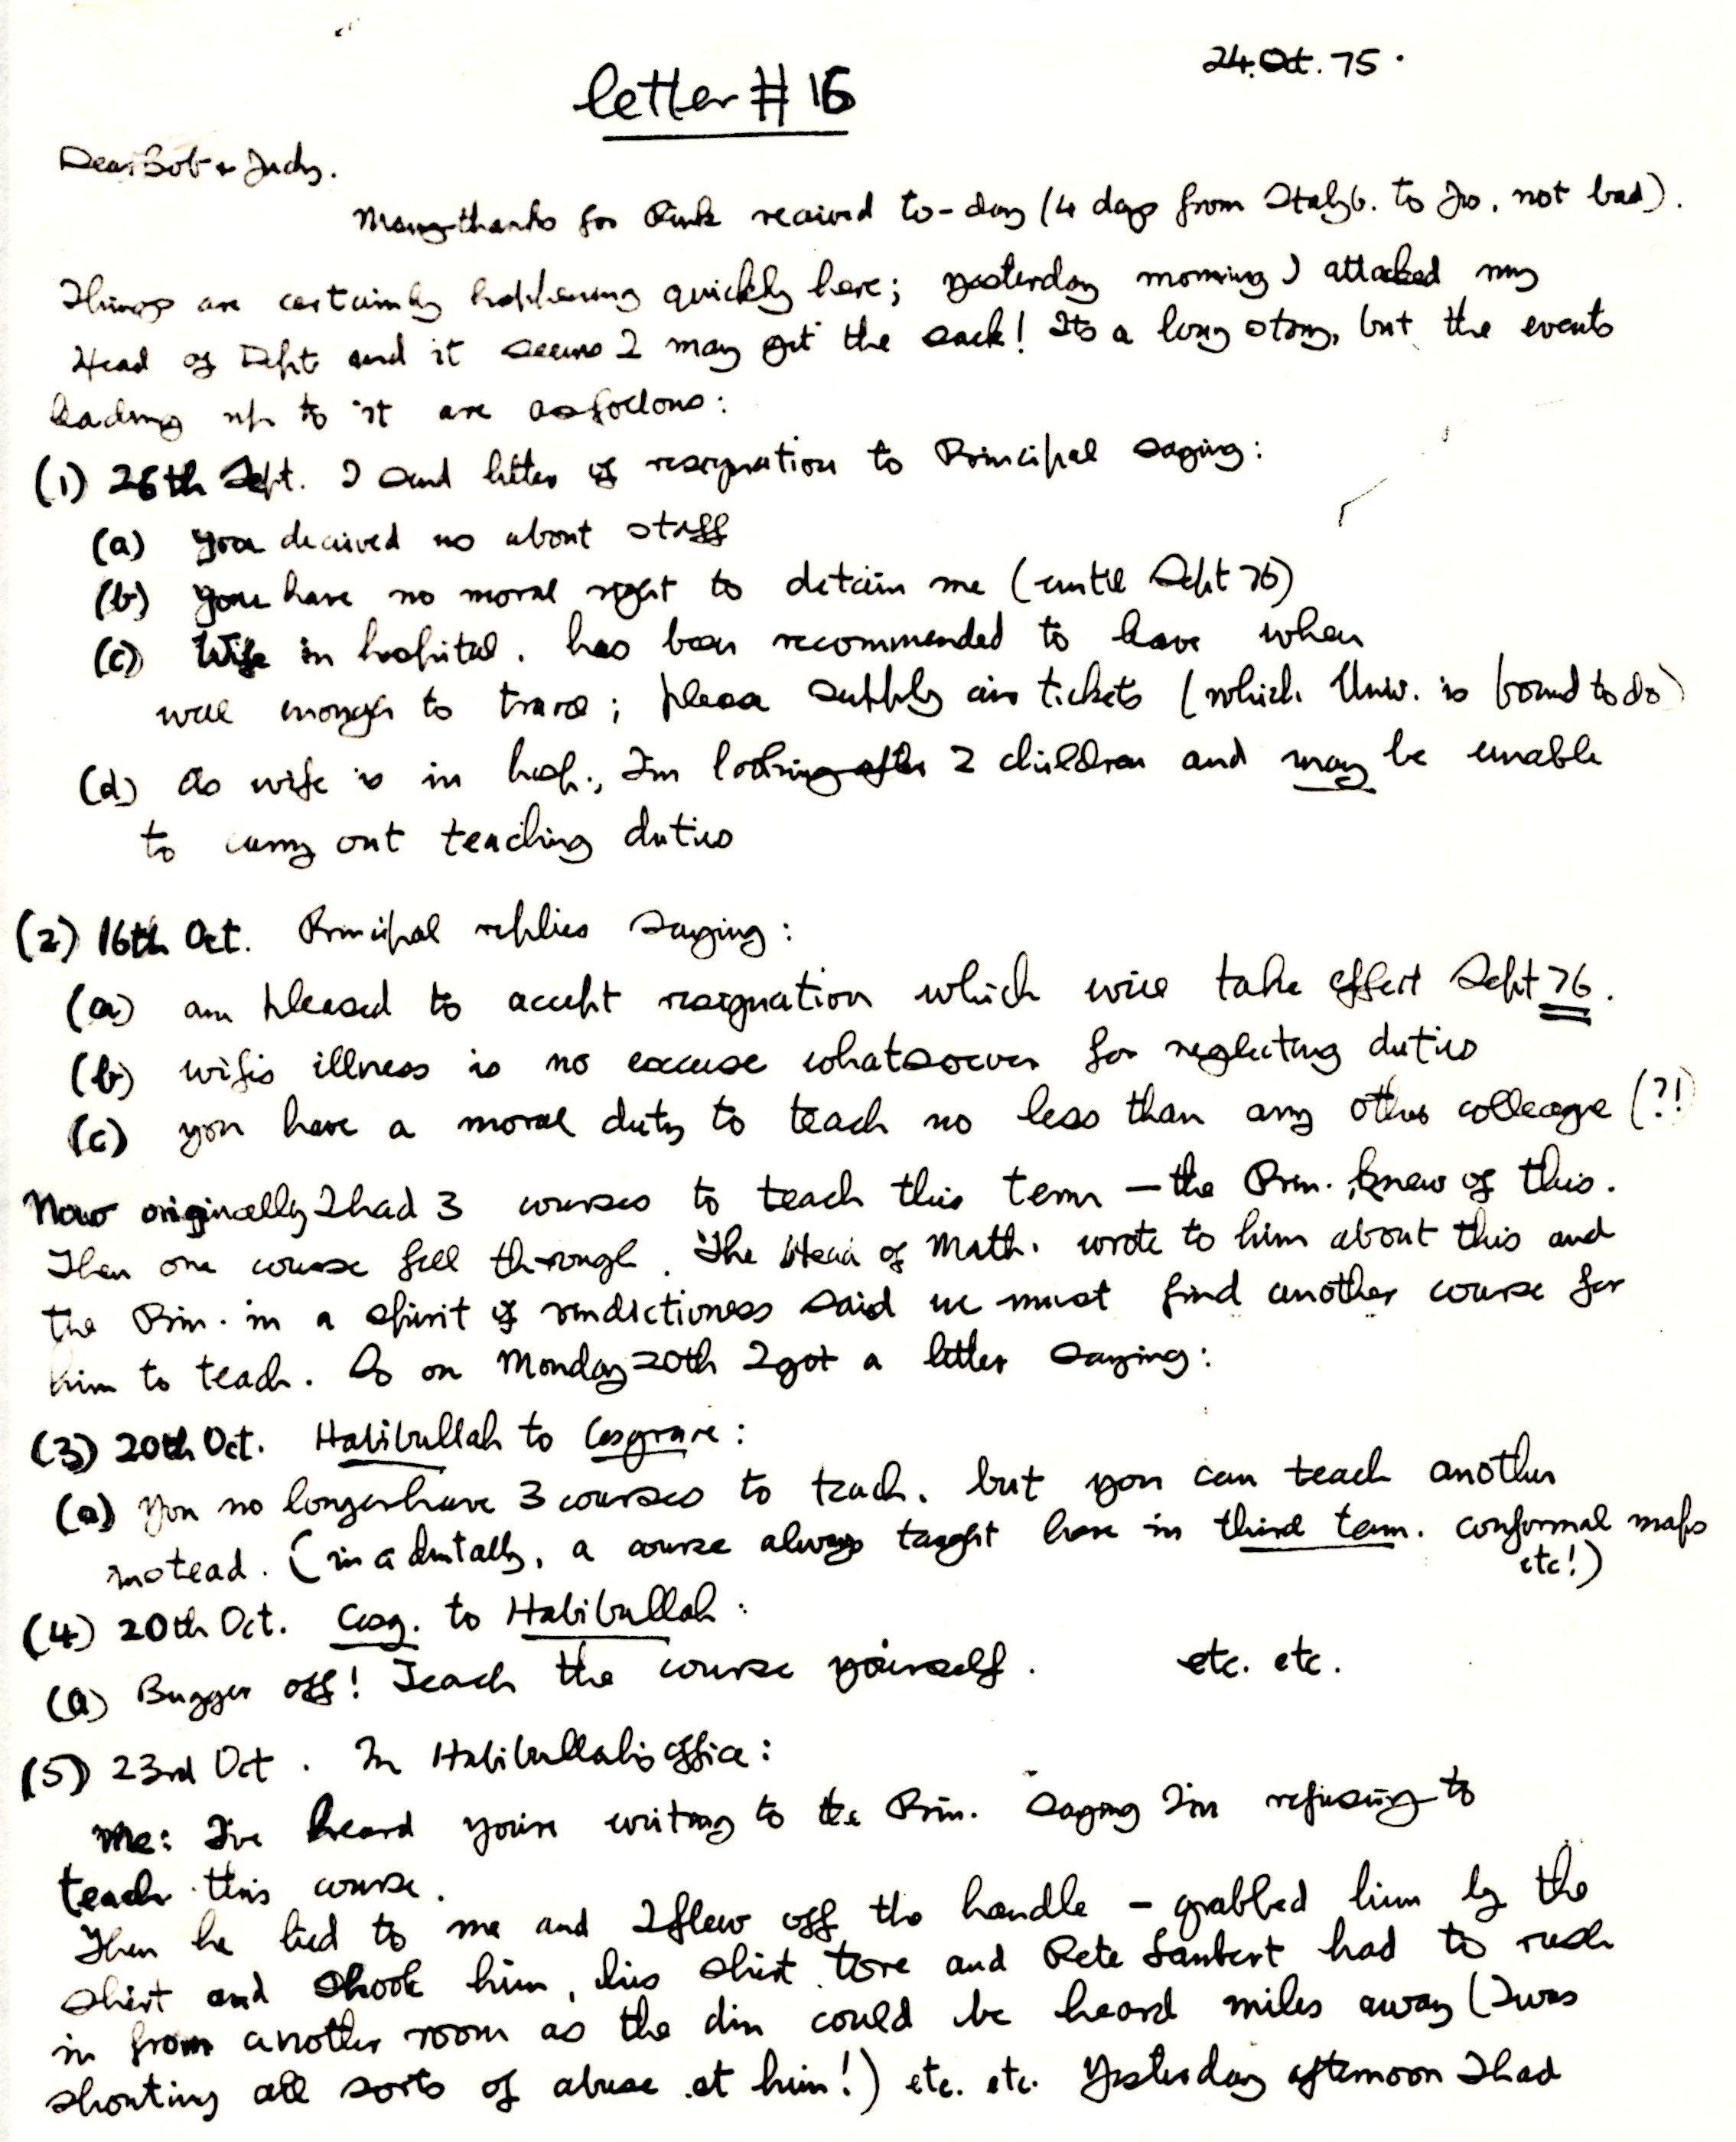 24.Oct.75.
letter # 16
Dear Bob & Judy.
Many thanks for Pink received to-day (4 days from Stalyb. to Jo, not bad).
Things are certainly happening quickly here; yesterday morning I attacked my
Head of Dept and it seems I may get the sack! Its a long story, but the events
leading up to it are as follows:
(1) 26th Sept. I send letter of resignation to Principal saying:
(a) you deceived us about staff
(b) you have no moral right to detain me (until Sept 76)
(c) Wife in hospital. has been recommended to leave when
well enough to travel; please supply air tickets (which Univ. is bound to do)
(d) As wife is in hosp., I'm looking after 2 children and may be unable
to carry out teaching duties
(2) 16th Oct. Principal replies saying:
(a) am pleased to accept resignation which will take effect Sept 76.
(b) wife's illness is no excuse whatsoever for neglecting duties
(c) you have a moral duty to teach no less than any other colleague (?!)
Now originally I had 3 courses to teach this term — the Prin. knew of this.
Then one course fell through. The Head of Math. wrote to him about this and
the Prin. in a spirit of vindictiveness said we must find another course for
him to teach. So on Monday 20th I got a letter saying:
(3) 20th Oct. Habibullah to Cosgrave:
(a) You no longer have 3 courses to teach. but you can teach another
instead. (incidentally, a course always taught here in third term. conformal maps
etc!)
(4) 20th Oct. Cosg. to Habibullah:
(a) Bugger off! Teach the course yourself. etc. etc.
(5) 23rd Oct. In Habibullah's office:
Me: I've heard you're writing to the Prin. saying I'm refusing to
teach this course.
Then he lied to me and I flew off the handle - grabbed him by the
shirt and shook him, his shirt tore and Pete Lambert had to rush
in from another room as the din could be heard miles away (I was
shouting all sorts of abuse at him!) etc. etc. Yesterday afternoon I had